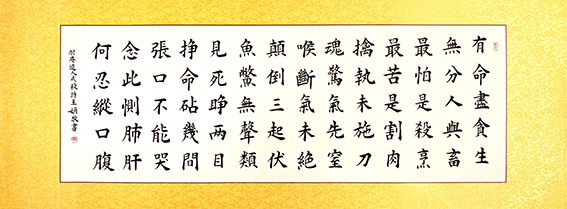 有命盡貪生
無分人與畜
最怕是殺烹
最苦是割肉
擒執未施刀
魂驚氣先室
喉斷氣未絕
顛倒三起伏
魚鱉無聲類
見死睜兩目
掙命砧幾間
張口不能哭
念此惻肺肝
何忍縱口腹
耐庵道人戒殺詩王娟敬書